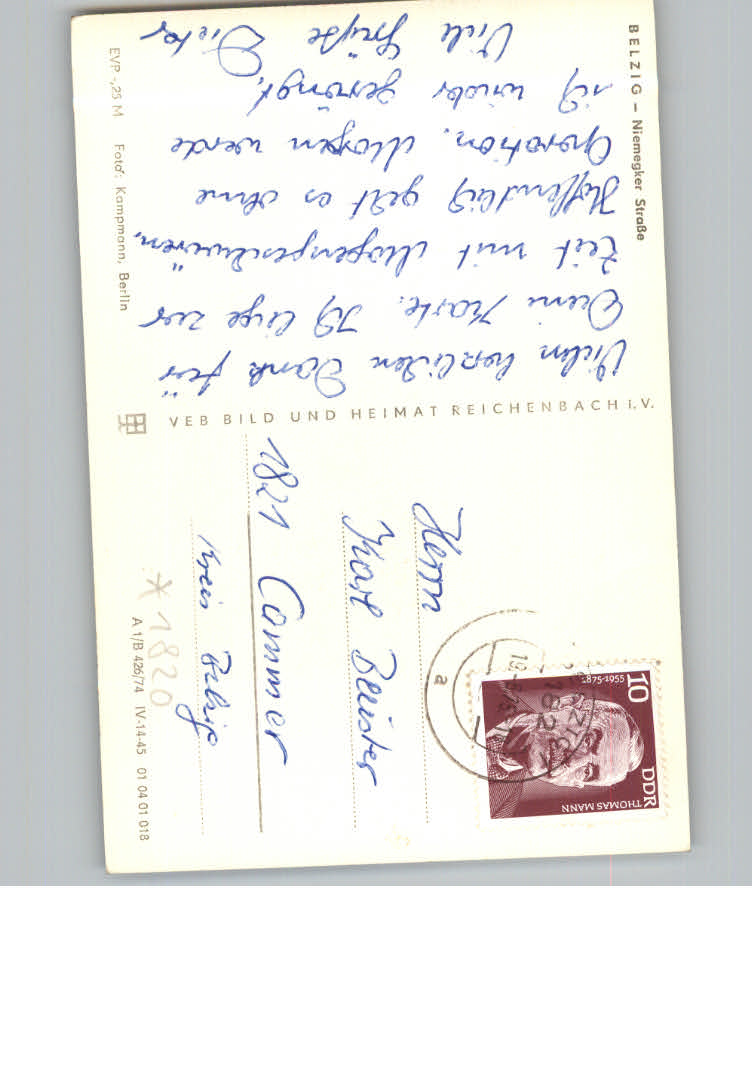 BELZIG – Niemegker Straße
Vielen herzlichen Dank für
Deine Karte. Ich liege zur
Zeit mit Magengeschwüren.
Hoffentlich geht es ohne
Operation. Morgen werde
ich wieder geröngt.
Viele Grüße Dieter
EVP -,25 M Foto: Kampmann, Berlin
VEB BILD UND HEIMAT REICHENBACH i. V.
Herrn
Karl
1821 Cammer
Kreis Belzig
*1820
A 1/B 426/74 IV-14-45 01 04 01 018
10
1875-1955
DDR
THOMAS MANN
BELZIG
182
a